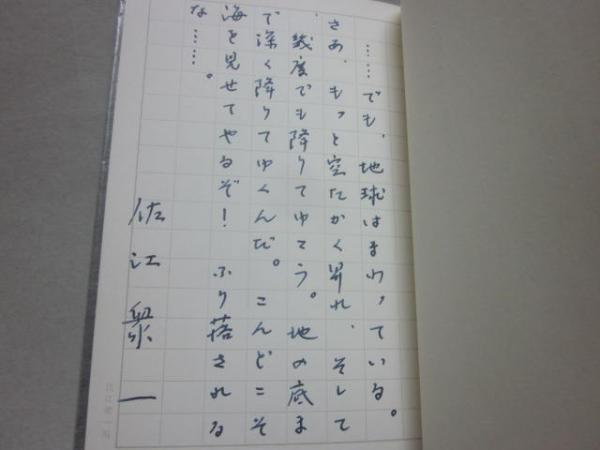 ……でも、地球はまわっている。
さあ、もっと空たかく昇れ、そして
、幾度でも降りてゆこう。地の底ま
で深く降りてゆくんだ。こんどこそ
海を見せてやるぞ！　ふり落される
な……。
佐江衆一